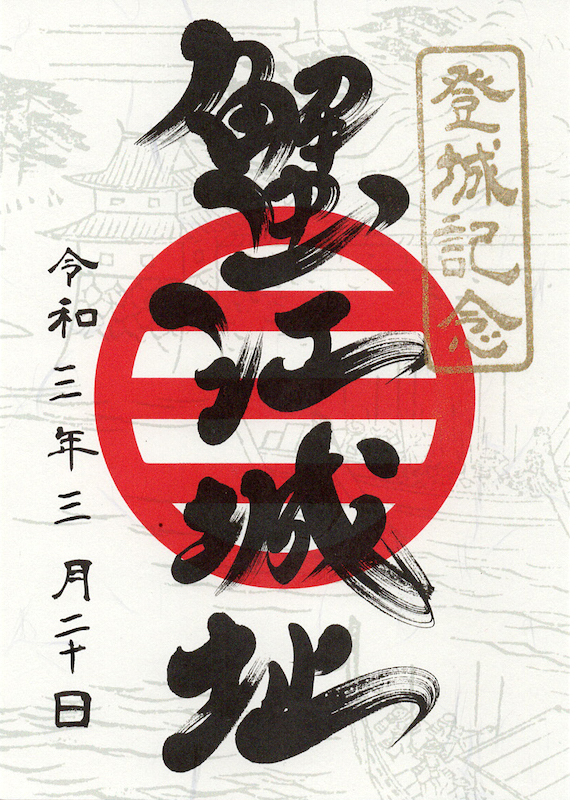 登城記念
蟹江城址
令和三年三月二十日